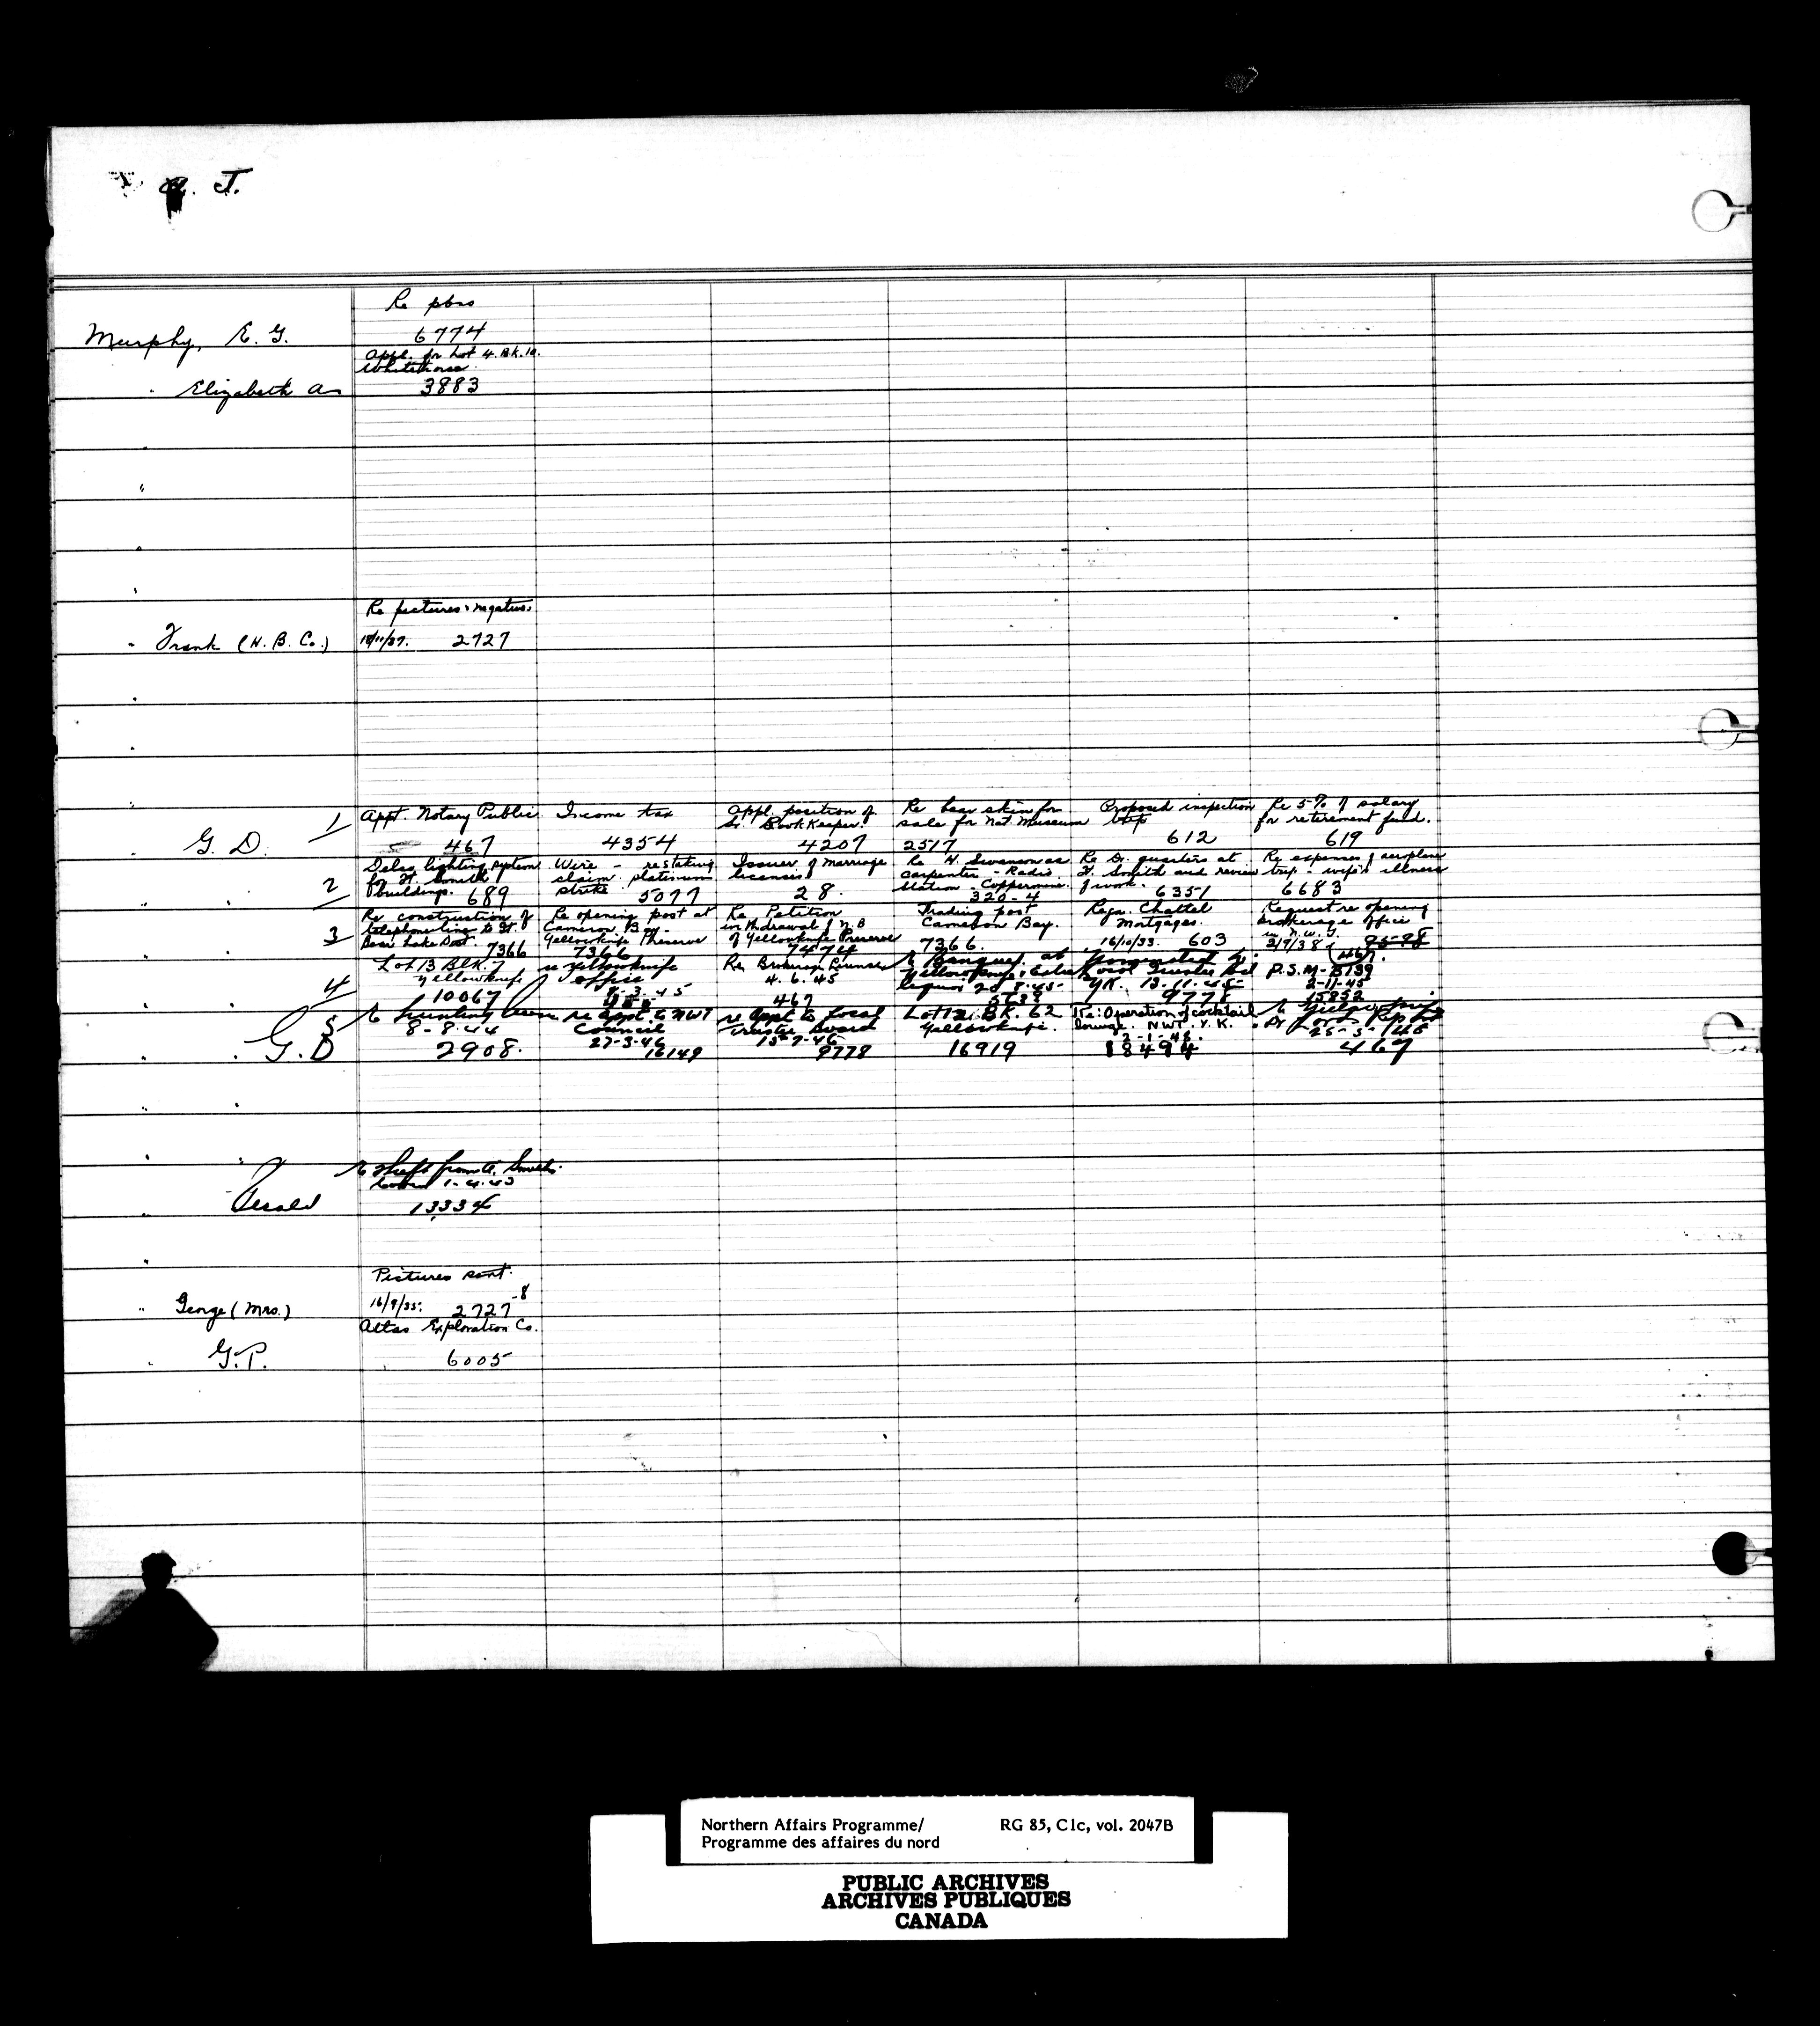 J.
Re pbns
Murphy, E. G. 6774
Appl. for Lot 4. Bk. 10.
Whitehorse.
" Elizabeth A 3883
Re pictures & negatives
" Frank (H. B. Co.) 18/11/37. 2727
1 Appt. Notary Public Income tax Appl. position of Re bear skin for Proposed inspection Re 5% of salary
Sr. Book Keeper. sale for Nat. Museum trip for retirement fund.
" G. D. 467 4354 4207 2517 612 619
Delco lighting system Wire - restaking Issuer of marriage Re H. Swanson as Re Dr. quarters at Re expenses of aeroplane
2 for Ft. Smith claim. platinum licenses carpenter - Radio Ft. Smith and review trip - wife's illness
buildings. 689 strike 5077 28. Station - Coppermine. 320-4 of work. 6351 6683
Re construction of Re opening post at Re Petition Trading post Regn. Chattel Request re opening
3 telephone line to Gt. Cameron Bay - withdrawal of N.B Cameron Bay. Mortgages. brokerage office
Bear Lake Dist. 7366 Yellowknife Preserve 7366 of Yellowknife Preserve 7474 7366. 16/10/33. 603 in N.W.T. 2/9/38
467.
Lot 13 Blk. 7 re yellowknife Re Brokerage License re Banquet at P.S.M-B139
4 Yellowknife office 4.6.45 Yellowknife liquor 20.8.45 Local Trustee Bd YK. 13-11-45 2-11-45
10067 8-3-45 467 9778 15852
5 re hunting license re appt. to NWT re appt to Local Lot 12. BK. 62 Re: Operation of cocktail
8-8-44 Council Trustee Board Yellowknife. lounge. N.W.T. Y.K.
27-3-46 15-7-46 2-1-48. 25-5-48
" " G.D 2908. 16149 9778 16919 18494 467
re theft from A. Smith
1-4-43
" Gerald 13334
Pictures sent.
" George (Mrs.) 16/9/35. 2727-8
Atlas Exploration Co.
" G.P. 6005
Northern Affairs Programme/ RG 85, C1c, vol. 2047B
Programme des affaires du nord
PUBLIC ARCHIVES
ARCHIVES PUBLIQUES
CANADA